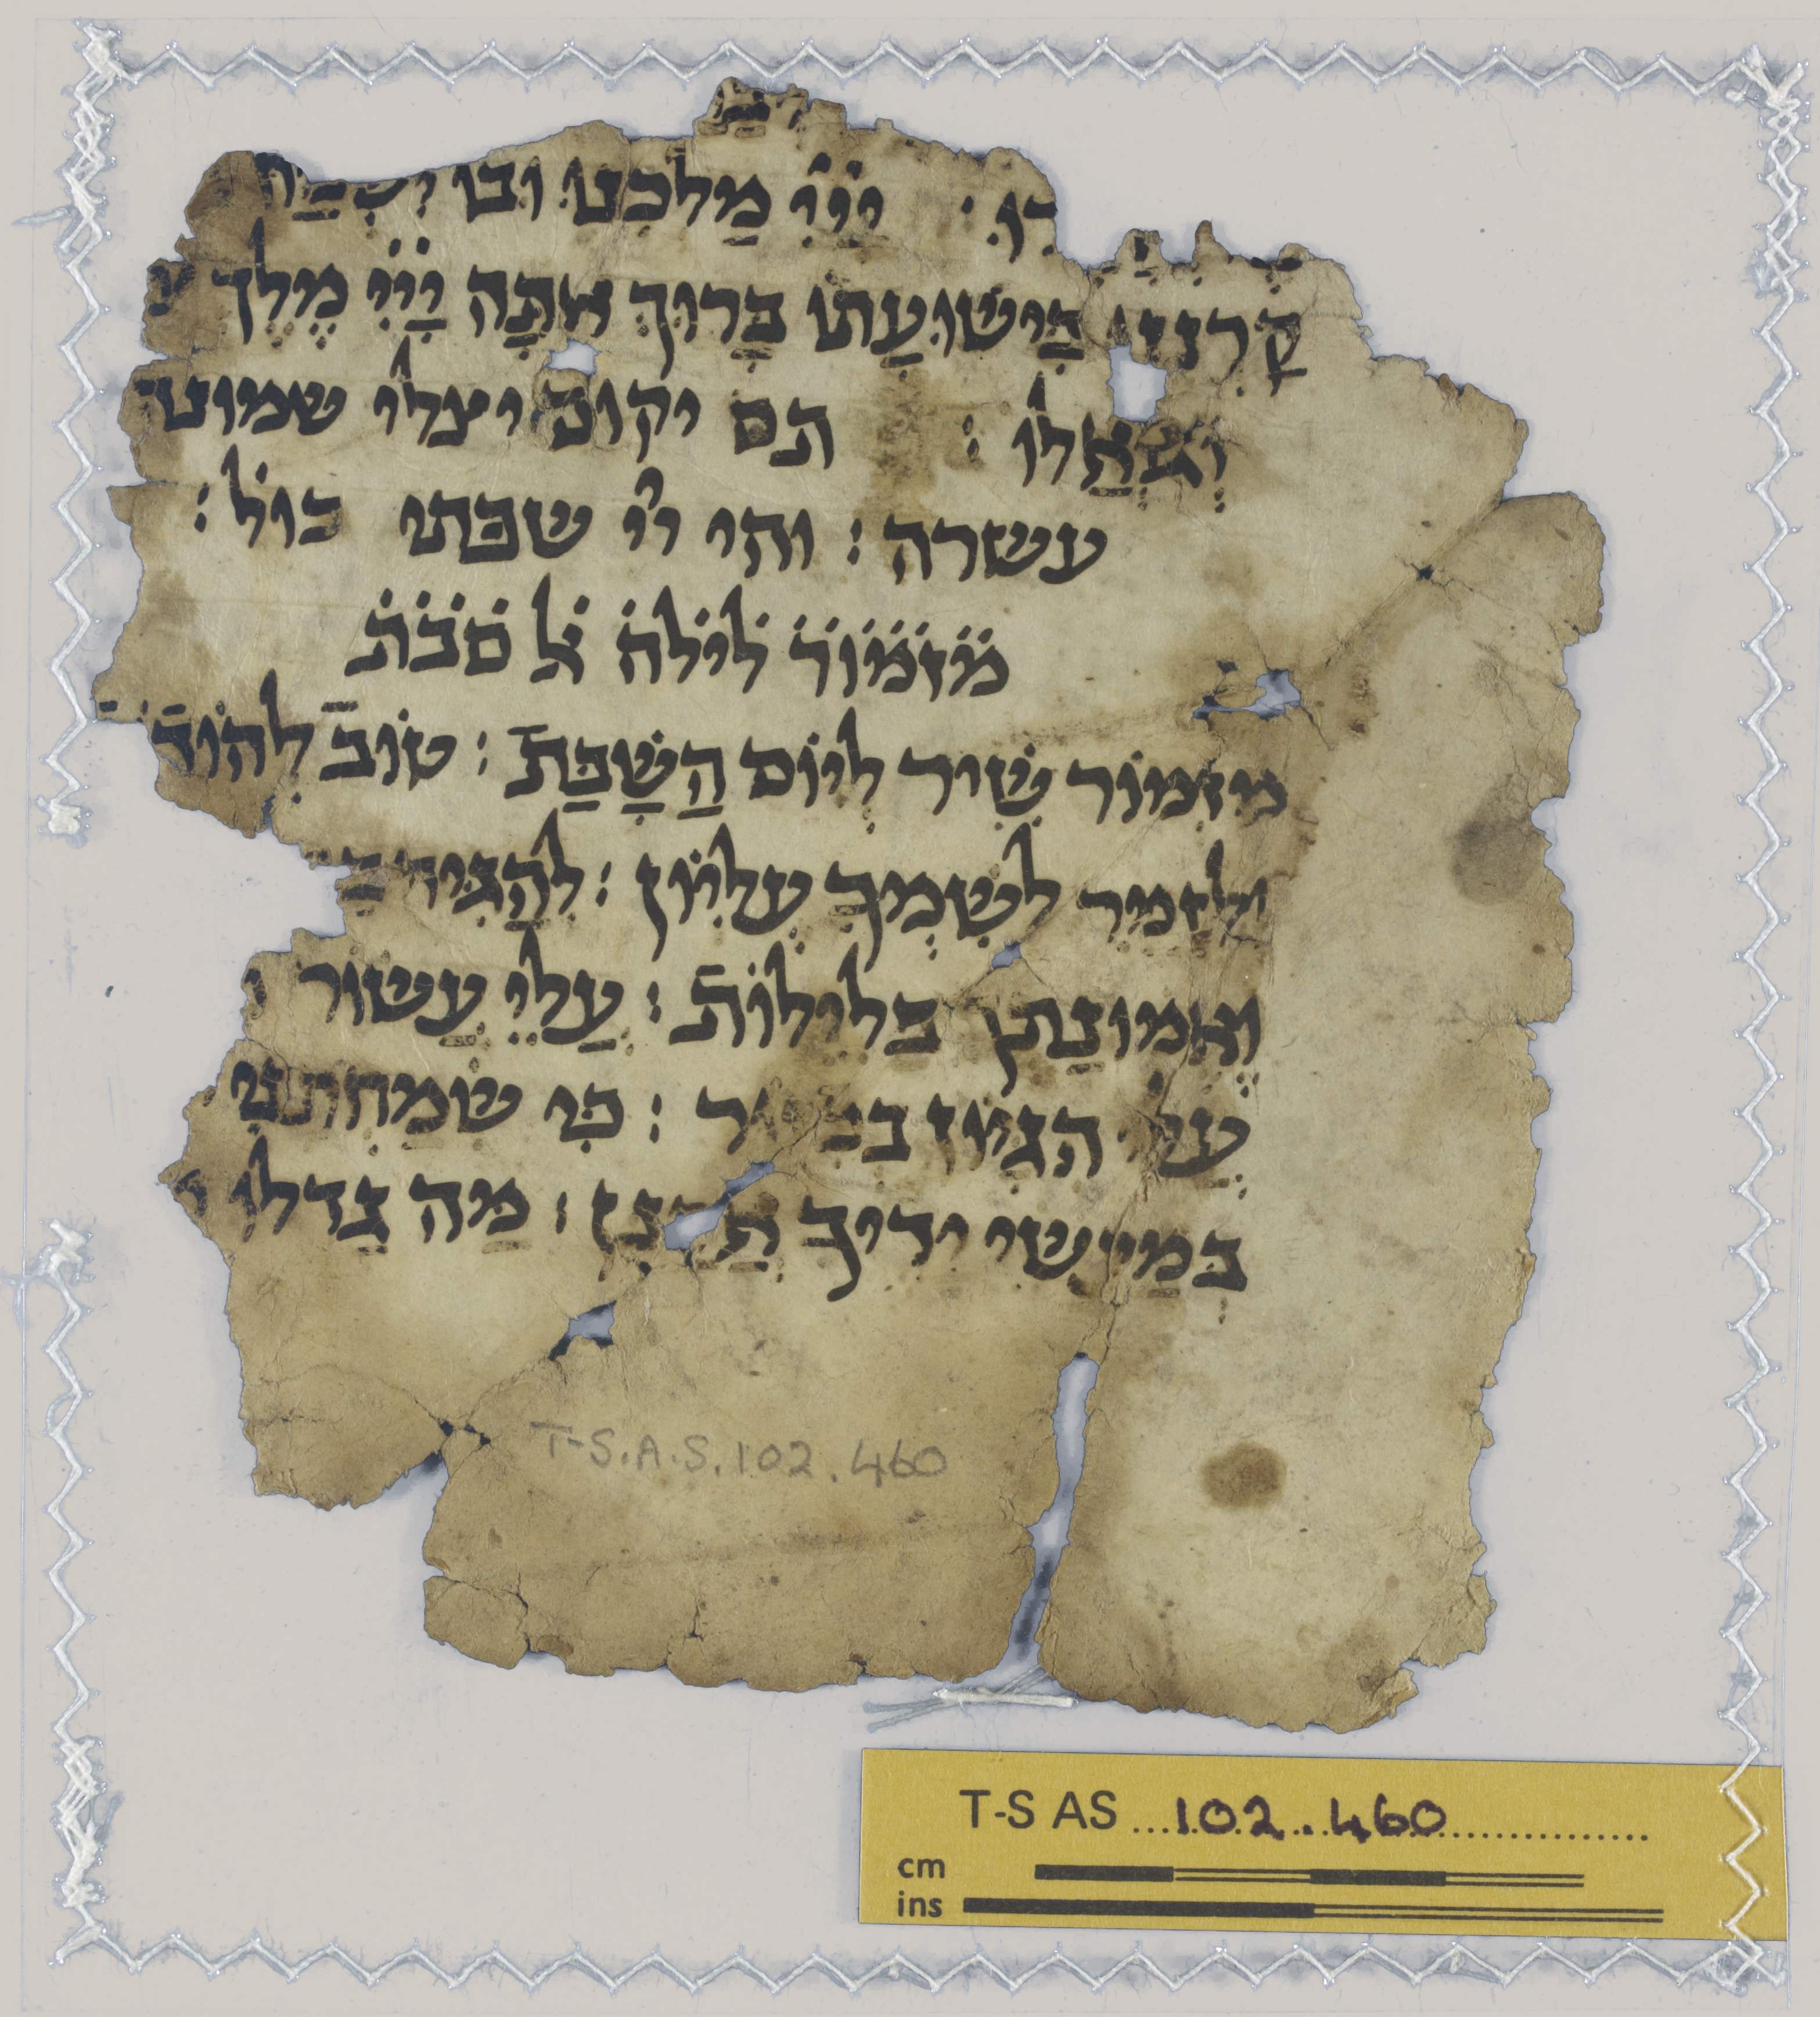 ייי מַלְכֵּנוּ וּבוֹ
קַרְנֵנוּ בִּישׁוּעָתוֹ בָּרוּךְ אַתָּה יְיָיִ מֶלֶךְ
וְגֹאֲלוֹ : תם יקום יצלי שמונה
עשרה : ותי ייי שבתי כול :
מזמור לילה אל סבת
מִזְמוֹר שִׁיר לְיוֹם הַשַּׁבָּת : טוֹב לְהוֹד
וּלְזַמֵּר לְשִׁמְךָ עֶלְיוֹן : לְהַגִּיד
וֶאֱמוּנָתְךָ בַּלֵּילוֹת : עֲלֵי עָשׂוֹר
עֲלֵי הִגָּיוֹן בְּכִנּוֹר : כִּי שִׂמַּחְתַּנִי
בְּמַעֲשֵׂי יָדֶיךָ אֲרַנֵּן : מַה גָּדְלוּ
T-S.A.S.102.460
T-S AS 102.460
cm
ins